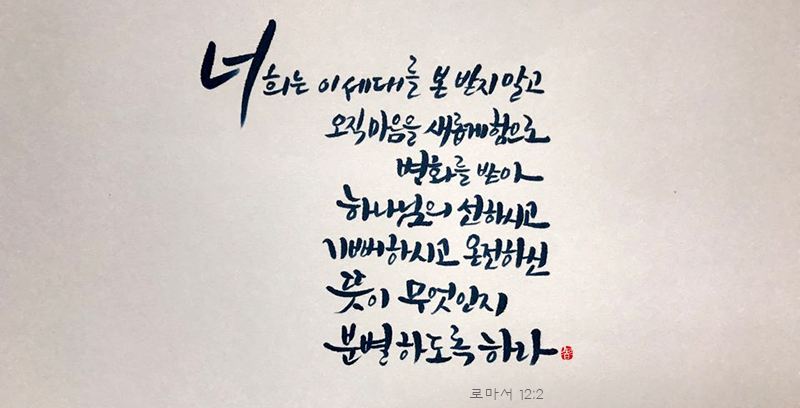 너희는 이 세대를 본 받지 말고
오직 마음을 새롭게 함으로
변화를 받아
하나님의 선하시고
기뻐하시고 온전하신
뜻이 무엇인지
분별하도록 하라
로마서 12:2